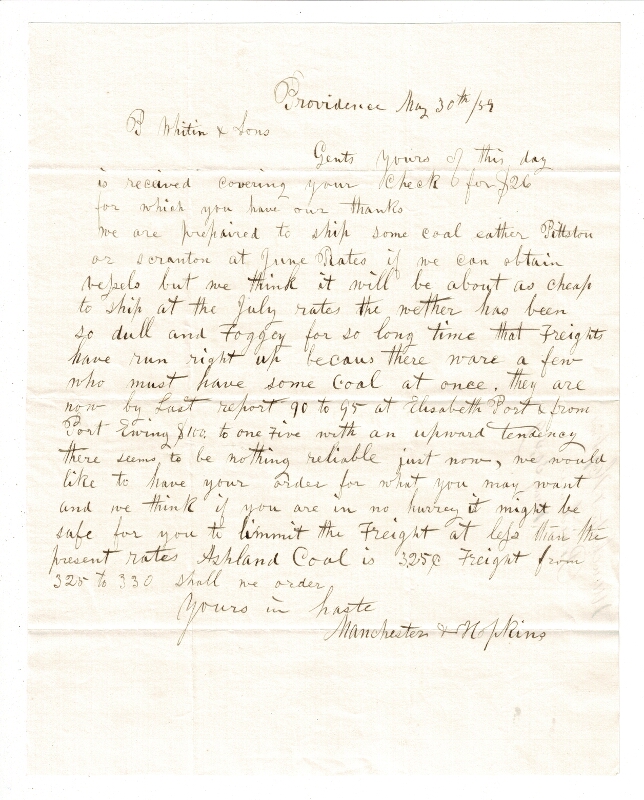 Providence May 30th/59
P Whitin & Sons
Gents Yours of this day
is received covering your Check for $26
for which you have our thanks
we are prepaired to ship some coal eather Pittston
or scranton at June Rates if we can obtain
vessels but we think it will be about as cheap
to ship at the July rates the wether has been
so dull and Foggey for so long time that Freights
have run right up becaus there ware a few
who must have some Coal at once. they are
now by Last report 90 to 95 at Elisabeth Port & from
Port Ewing $100. to one Five with an upward tendency
there seems to be nothing reliable just now, we would
like to have your order for what you may want
and we think if you are in no hurrey it might be
safe for you to limmit the Freight at less than the
present rates Ashland Coal is 325¢ Freight from
325 to 330 shall we order
Yours in haste
Manchester & Hopkins